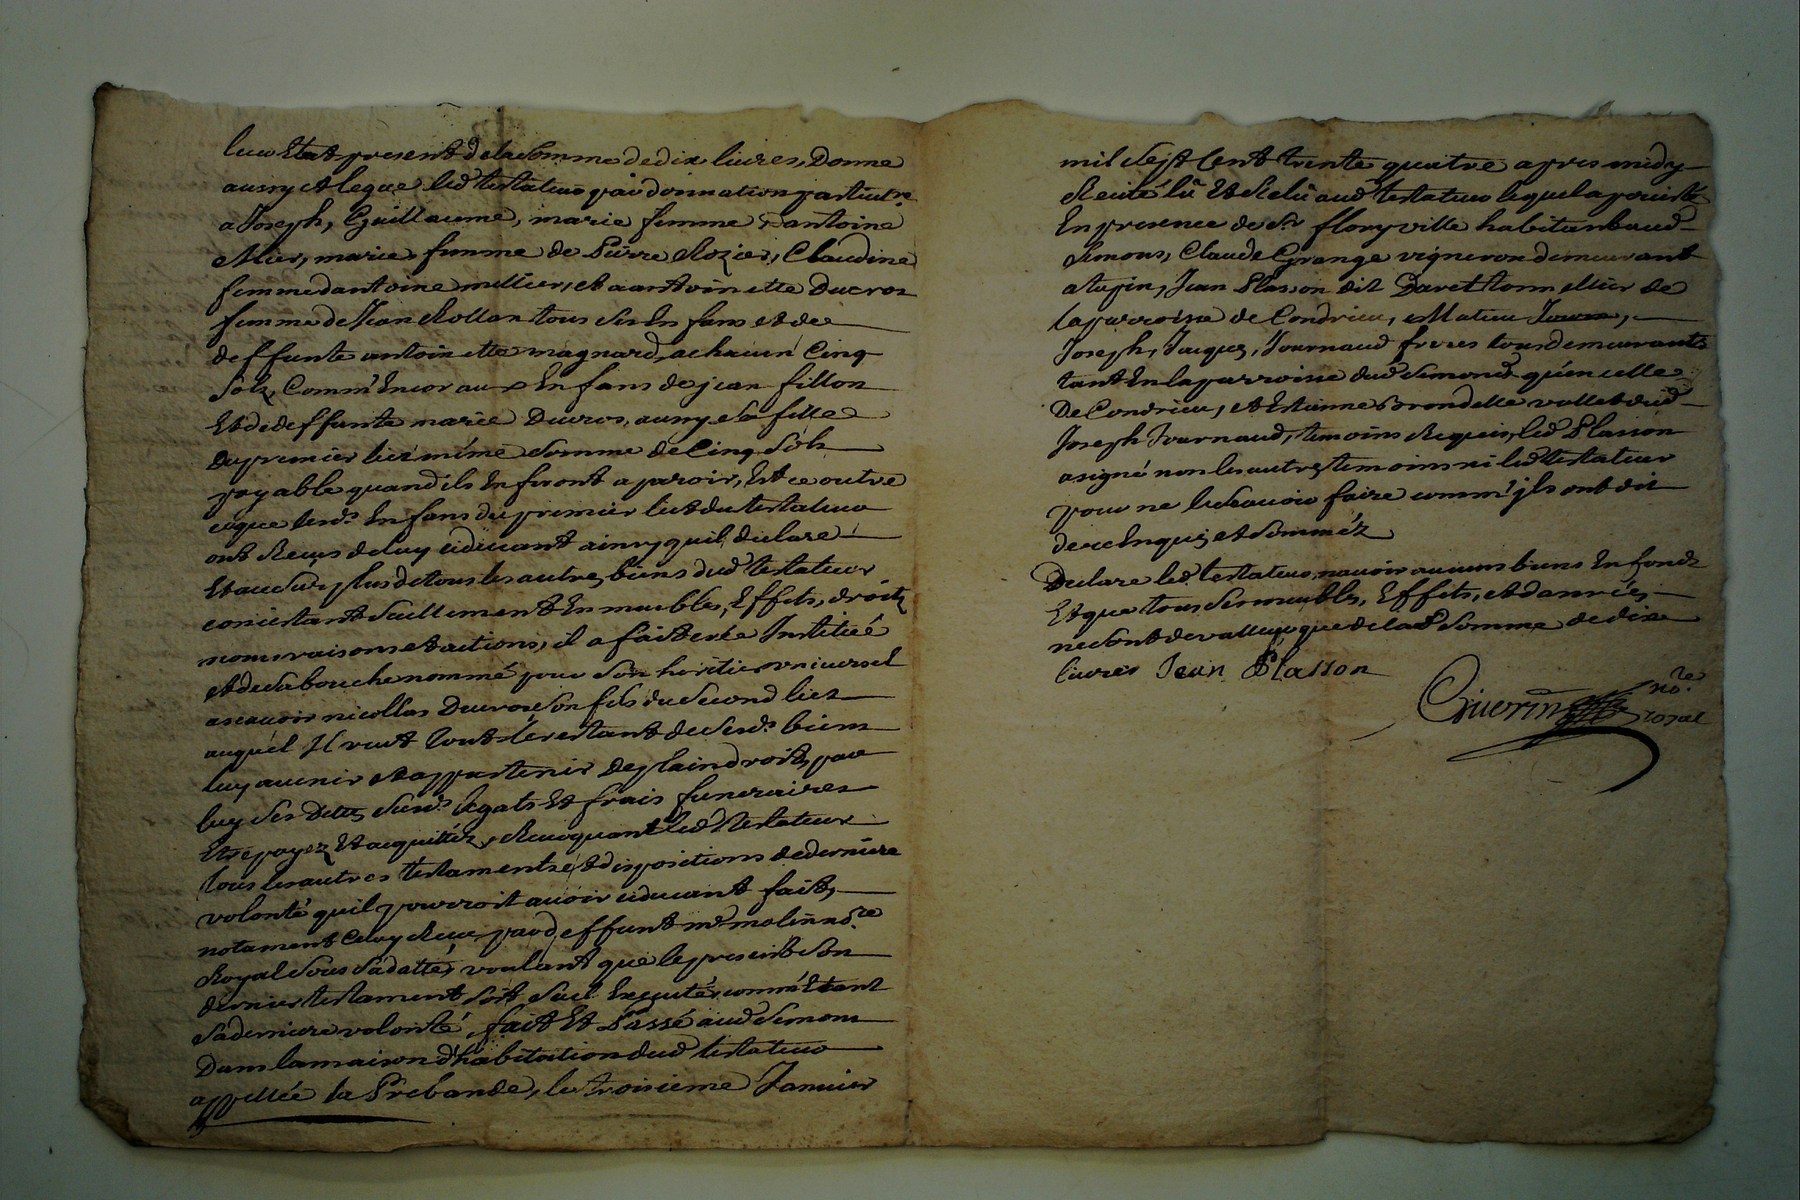 leur Etat present de la Somme de dix livres, Donne
aussy et legue led. testateur par donnation particul.re
a Joseph, Guillaume, marie femme d'antoine
Mier, marie femme de Pierre Rozier, Claudine
femme dantoine mettier, et a antoinette Ducros
femme de Jean Rollan tous ses Enfans et de
deffunte antoinette magnard, a chacun Cinq
Sols, Comm'Encor aux Enfans de jean fillon
Et de deffunte marie Ducros, aussy sa fille
du premier lict même Somme de Cinq Sols
payable quand ils En feront aparoir, Et ce outre
ceque lesd.s Enfans du premier lict du testateur
ont Receus de luy cidevant ainsy quil declare
Et au Surplus de tous les autres biens dud. testateur
consistant Seullement En meubles, Effets, droits
noms raisons et actions, il a fait crée Institüé
et de sa bouche nommé pour Son heritier universel
a scavoir nicollas Ducros Son fils du Second lict
auquel Il veut tout le restant de Sesd.s biens
luy avenir et appartenir De plain droit, par
luy Ses Dettes Susd.s legats Et frais funeraires
Etre payez Et acquittéz, Revoquant led. testateur
tous les autres testaments et dispositions de derniere
volonté quil pourroit avoir cidevant fait,
notament Celuy Receu par deffunt m.e molin no.re
Royal Sous Sa datte, voulant que le present Son
dernier testament soit Seul Executé, comm'Etant
Sa derniere volonté, fait Et Passé aud. Semons
Dans la maison d'habitation dud. testateur
appellée la Prebande, le troisieme Janvier
mil Sept Cent trente quatre apres midy
Recité lû Et Relû aud. testateur lequel a
En presence de S.r flory ville habitant aud.
Semons, Claude Grange vigneron demeurant
a tupin, Jean Plasson dit Daret tonnellier de
la parroisse de Condrieu, Mathieu
Joseph, Jacques, Journaud freres tous demeurants
tant En la parroisse dud. Semons qu'en celle
De Condrieu, et Estienne Brondelle vallet dud.
Joseph Journaud, temoins Requis, led. Plasson
a signé non les autres temoins ni led. testateur
pour ne le Scavoir faire comm'jls ont dit
de ce Enquis et Sommés
Declare led. testateur, navoir aucuns biens En fonds
Et que tous Ses meubles, Effets, et danrées,
ne Sont de valleur que de la d. Somme de dix
livres Jean Plasson
Guerin no.re
royal